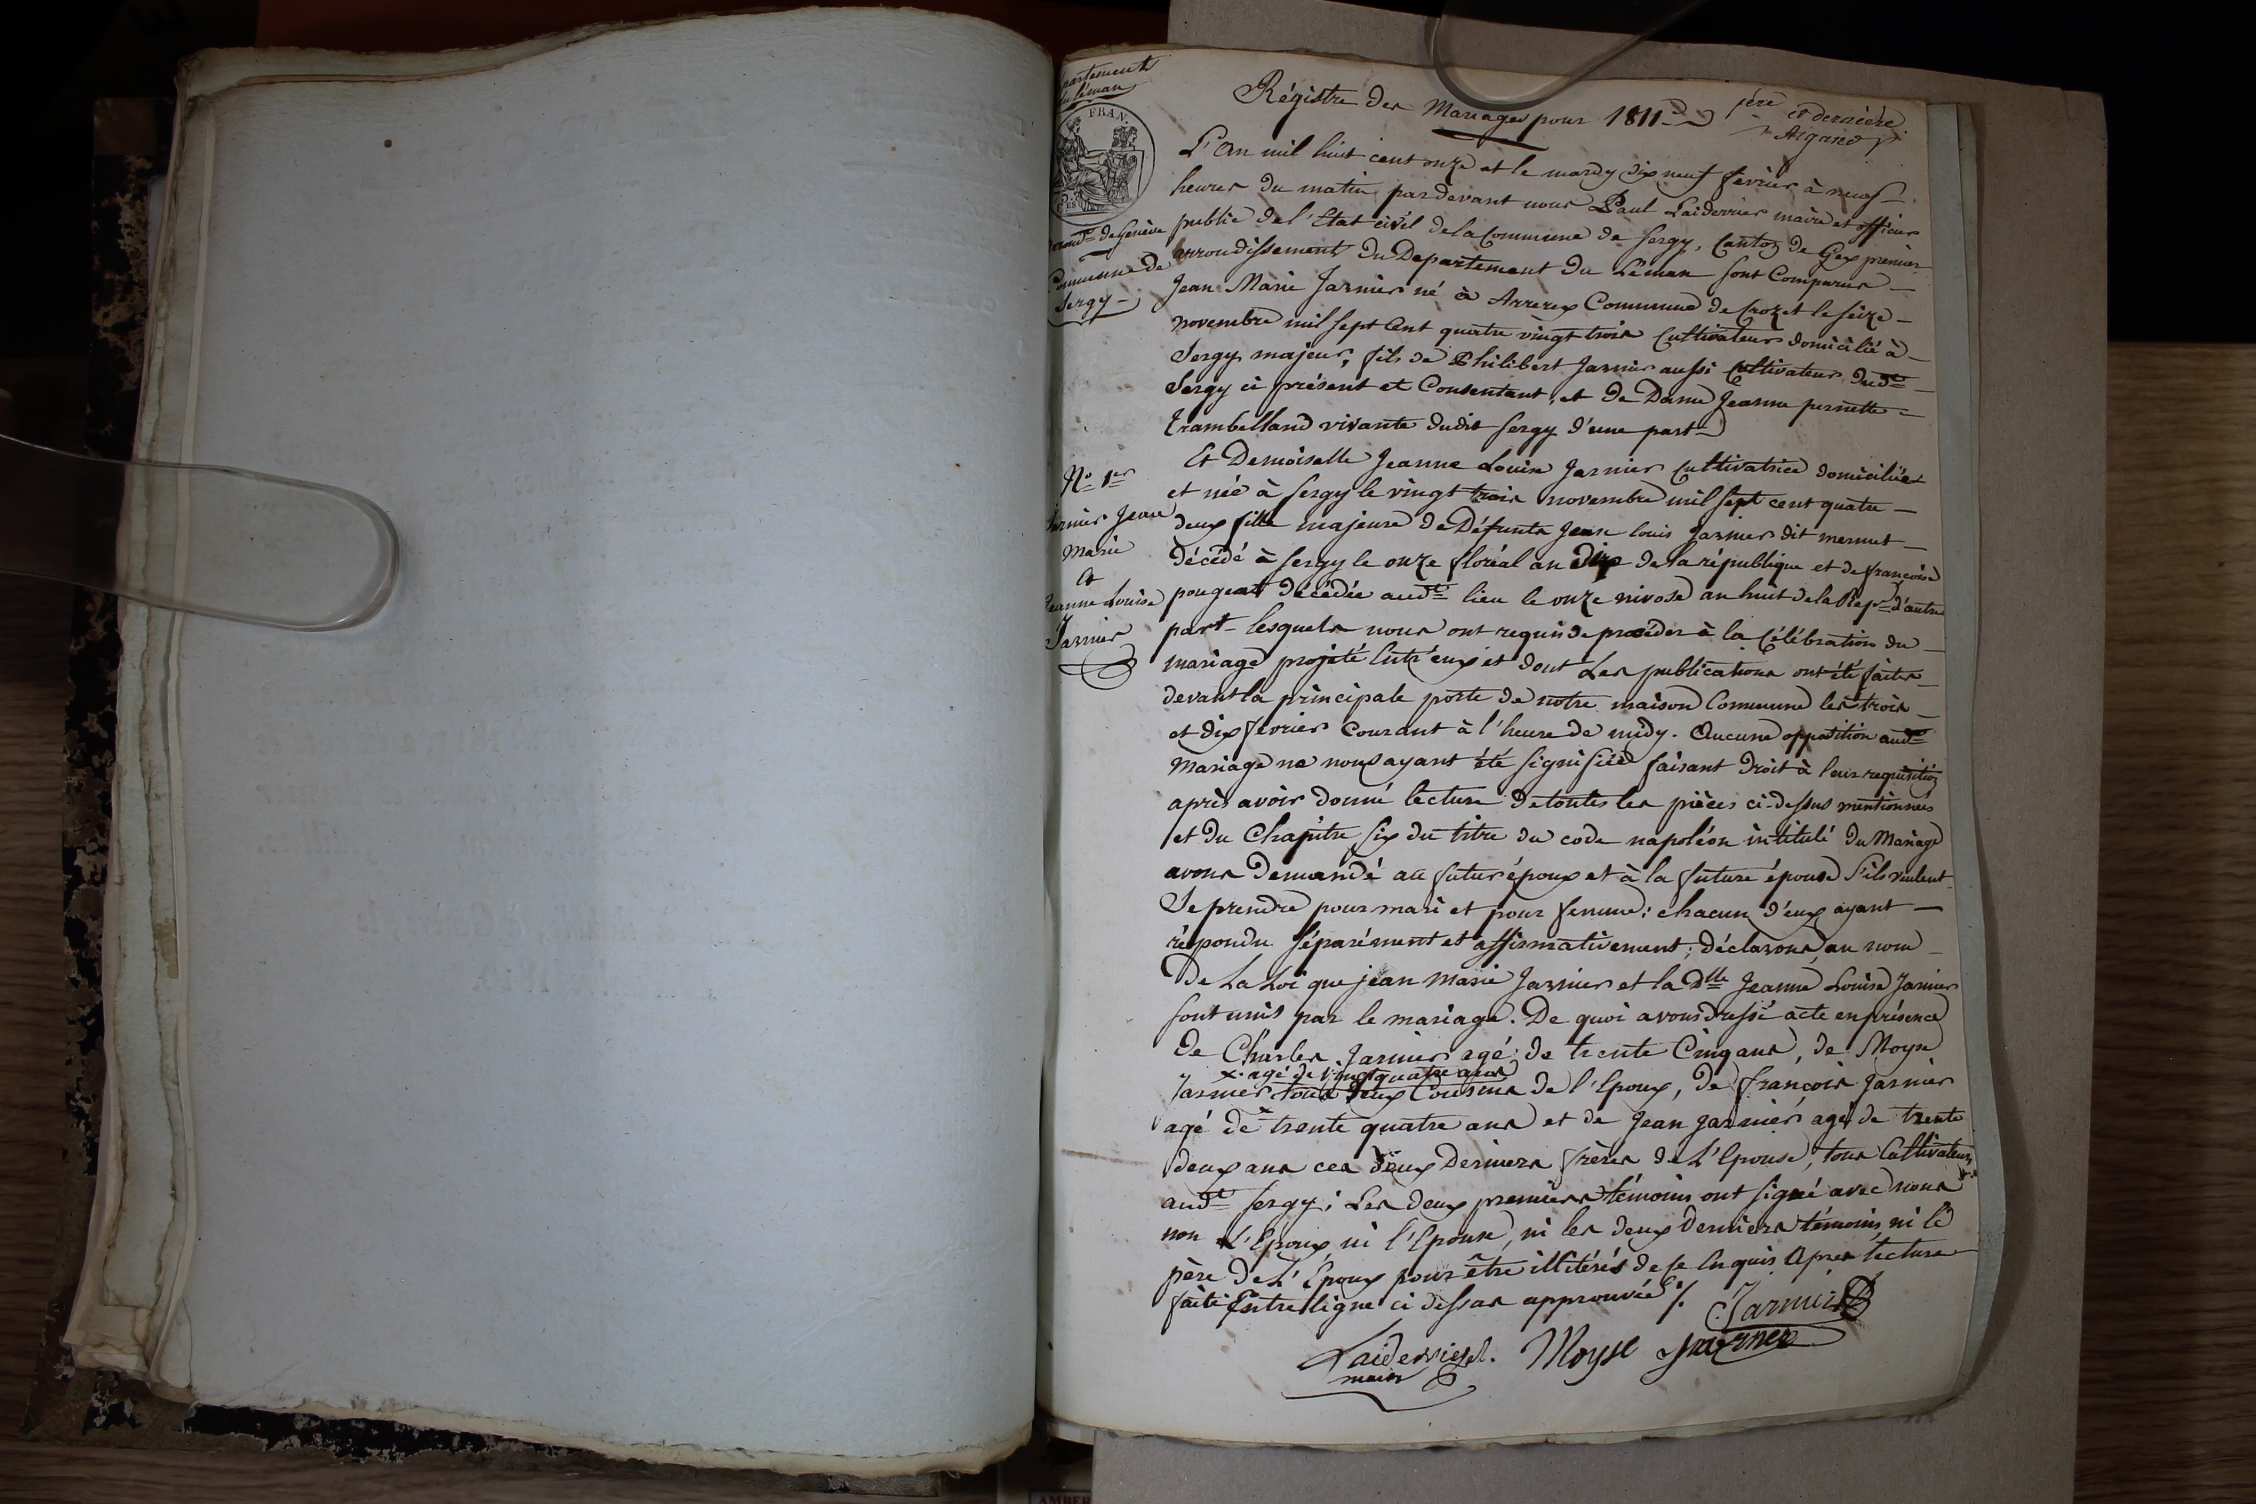 Département
du Léman
Régistre des Mariages pour 1811
1ère et dernière
Argand
FRAN.
L'An mil huit cent onze et le mardy dix neuf fevrier à neuf
heures du matin pardevant nous Paul Laiderrier maire et officier
arrond.t de Genève
public de l'Etat civil de la Commune de Sergy, Canton de Gex premier
Commune de
Sergy
arrondissement du Departement du Léman sont Comparus
Jean Marie Jarnier né à Avrerex Commune de Crozet le seize
novembre mil sept Cent quatre vingt trois Cultivateur domicilié à
Sergy majeur, fils de Philibert Jarnier aussi Cultivateur dud.t
Sergy ci présent et Consentant, et de Dame Jeanne pernette
Trambelland vivante dudit Sergy d'une part
N.o 1.er
Jarnier Jean
Marie
et
Jeanne Louise
Jarnier
Et Demoiselle Jeanne Louise Jarnier Cultivatrice domiciliée
et née à Sergy le vingt trois novembre mil sept cent quatre
deux fille majeure de Défunts Jean louis Jarnier dit mermet
décédé à Sergy le onze floréal an dix de la république et de françoise
pougeat décédée aud.t lieu le onze nivose an huit de la Rep.e d'autre
part lesquels nous ont requis de procéder à la Célébration du
mariage projeté Entr'eux et dont Les publications ont été faites
devant la principale porte de notre maison Commune les trois
et dix fevrier Courant à l'heure de midy. Aucune opposition aud.t
Mariage ne nous ayant été signifiée faisant Droit à leur requisition
après avoir donné lecture de toutes les pièces ci-dessus mentionnées
et du Chapitre Six du titre du code napoléon intitulé du Mariage
avons Demandé au futur époux et à la future épouse S'ils veulent
Se prendre pour mari et pour femme: chacun d'eux ayant
répondu séparément et affirmativement; déclarons au nom
De La Loi que jean Marie Jarnier et la D.lle Jeanne Louise Jarnier
sont unis par le mariage. De quoi avons dressé acte en présence
de Charles Jarnier agé de trente Cinq ans, de Moyse
x. agé de vingt quatre ans
Jarnier tous deux Cousins de l'Epoux, de françois Jarnier
agé de trente quatre ans et de Jean Jarnier agé de trente
deux ans ces deux Derniers frères de L'Epouse, tous Cultivateurs
aud.t Sergy; Les deux premiers témoins ont signé avec nous
non L'Epoux ni l'Epouse, ni les deux Derniers témoins ni le
père de L'Epoux pour être illitérés de ce Enquis Apres lecture
faite Entre ligne ci dessus approuvée ./.
Jarnier
Laiderrier
maire
Moyse Jarnier